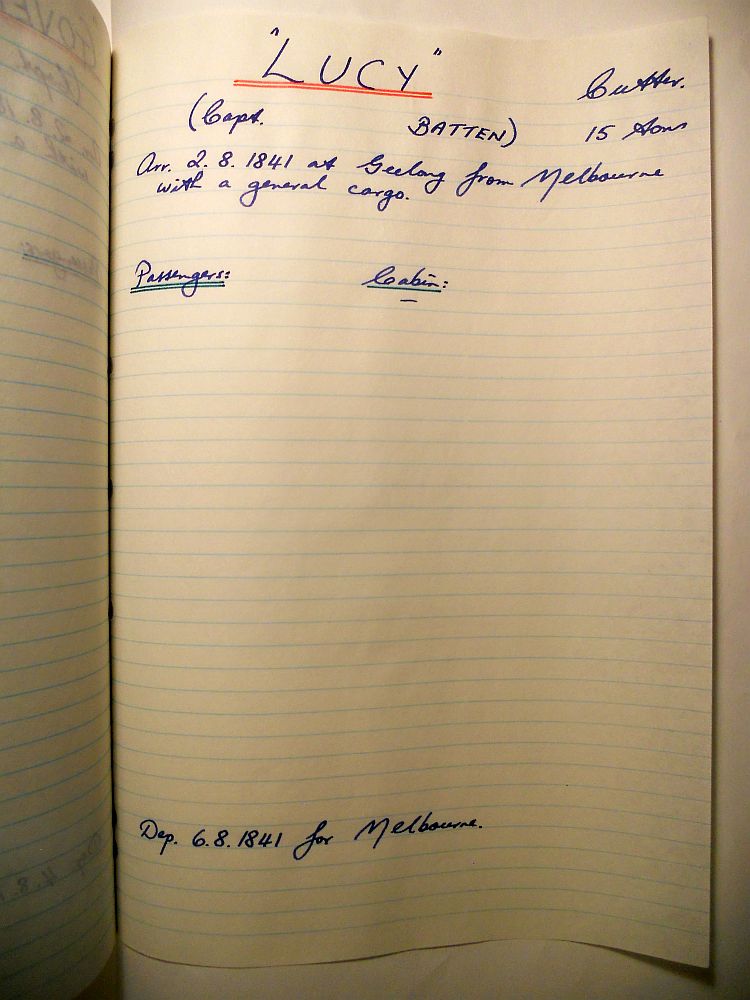 "LUCY"
Cutter.
(Capt. BATTEN) 15 tons
Arr. 2.8.1841 at Geelong from Melbourne
with a general cargo.
Passengers: Cabin:
—
Dep. 6.8.1841 for Melbourne.